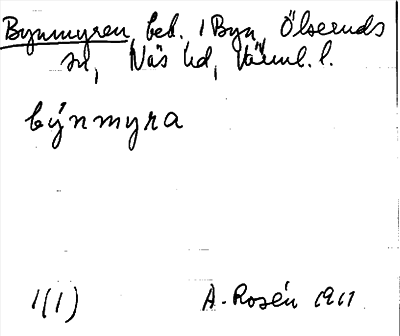 Bynmyren, beb. 1 Byn, Ölseruds
sn, Näs hd, Värml. l.
býnmyra
1(1) A. Rosén 1911